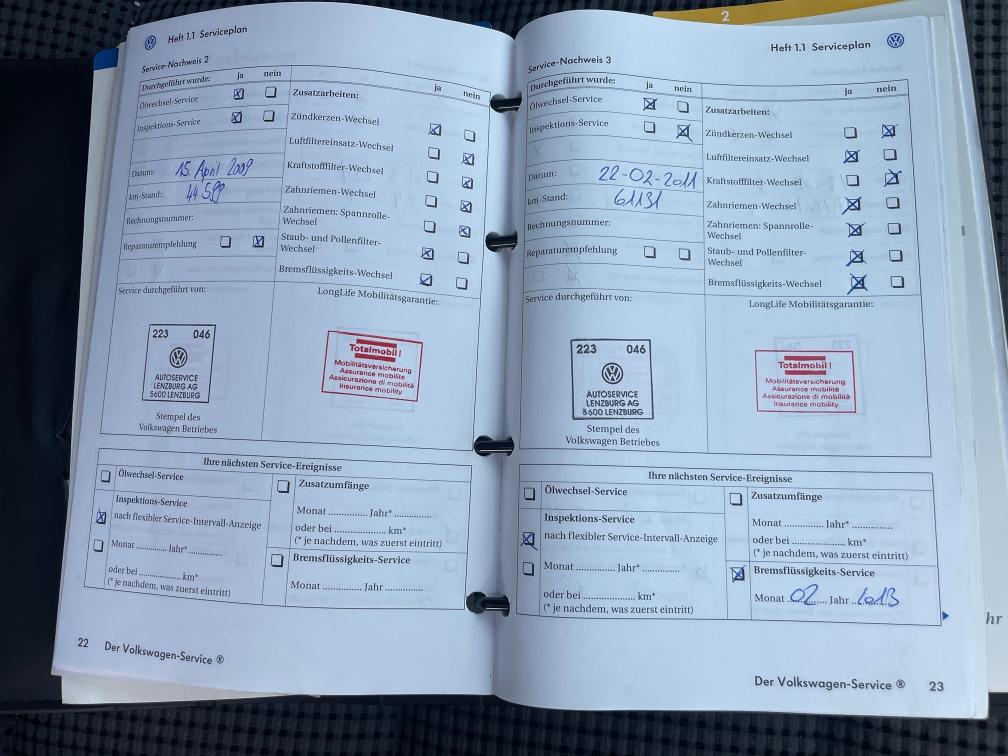 Heft 1.1 Serviceplan
Service-Nachweis 2
Durchgeführt wurde: ja nein
Ölwechsel-Service
Inspektions-Service
Datum: 15. April 2009
km-Stand: 44 599
Rechnungsnummer:
Reparaturempfehlung
Zusatzarbeiten: ja nein
Zündkerzen-Wechsel
Luftfiltereinsatz-Wechsel
Kraftstofffilter-Wechsel
Zahnriemen-Wechsel
Zahnriemen: Spannrolle-
Wechsel
Staub- und Pollenfilter-
Wechsel
Bremsflüssigkeits-Wechsel
Service durchgeführt von:
223 046
AUTOSERVICE
LENZBURG AG
5600 LENZBURG
Stempel des
Volkswagen Betriebes
LongLife Mobilitätsgarantie:
Totalmobil!
Mobilitätsversicherung
Assurance mobilité
Assicurazione di mobilità
Insurance mobility
Ihre nächsten Service-Ereignisse
Ölwechsel-Service
Inspektions-Service
nach flexibler Service-Intervall-Anzeige
Monat ............ Jahr* ............
oder bei ................ km*
(* je nachdem, was zuerst eintritt)
Zusatzumfänge
Monat ............ Jahr* ............
oder bei ................ km*
(* je nachdem, was zuerst eintritt)
Bremsflüssigkeits-Service
Monat ............ Jahr ............
22 Der Volkswagen-Service ®
2
Heft 1.1 Serviceplan
Service-Nachweis 3
Durchgeführt wurde: ja nein
Ölwechsel-Service
Inspektions-Service
Datum: 22-02-2011
km-Stand: 61131
Rechnungsnummer:
Reparaturempfehlung
Zusatzarbeiten: ja nein
Zündkerzen-Wechsel
Luftfiltereinsatz-Wechsel
Kraftstofffilter-Wechsel
Zahnriemen-Wechsel
Zahnriemen: Spannrolle-
Wechsel
Staub- und Pollenfilter-
Wechsel
Bremsflüssigkeits-Wechsel
Service durchgeführt von:
223 046
AUTOSERVICE
LENZBURG AG
5600 LENZBURG
Stempel des
Volkswagen Betriebes
LongLife Mobilitätsgarantie:
Totalmobil!
Mobilitätsversicherung
Assurance mobilité
Assicurazione di mobilità
Insurance mobility
Ihre nächsten Service-Ereignisse
Ölwechsel-Service
Inspektions-Service
nach flexibler Service-Intervall-Anzeige
Monat ............ Jahr* ............
oder bei ................ km*
(* je nachdem, was zuerst eintritt)
Zusatzumfänge
Monat ............ Jahr* ............
oder bei ................ km*
(* je nachdem, was zuerst eintritt)
Bremsflüssigkeits-Service
Monat 02 Jahr 2013
Der Volkswagen-Service ® 23
hr